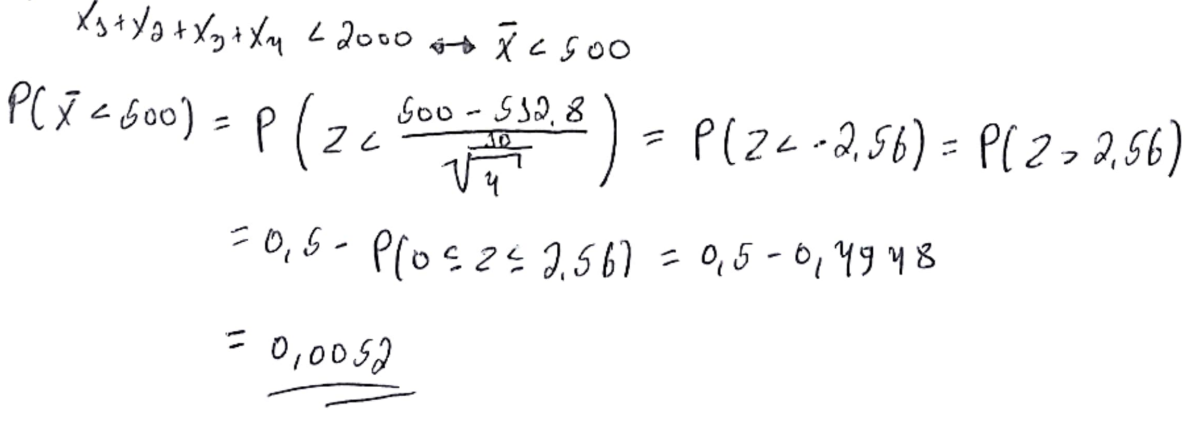 X₁+X₂+X₃+X₄ < 2000 ↔ X̄ < 500
P(X̄ < 500) = P(Z < (500 - 512,8) / (10/√4)) = P(Z < -2,56) = P(Z > 2,56)
= 0,5 - P(0 ≤ Z ≤ 2,56) = 0,5 - 0,4948
= 0,0052